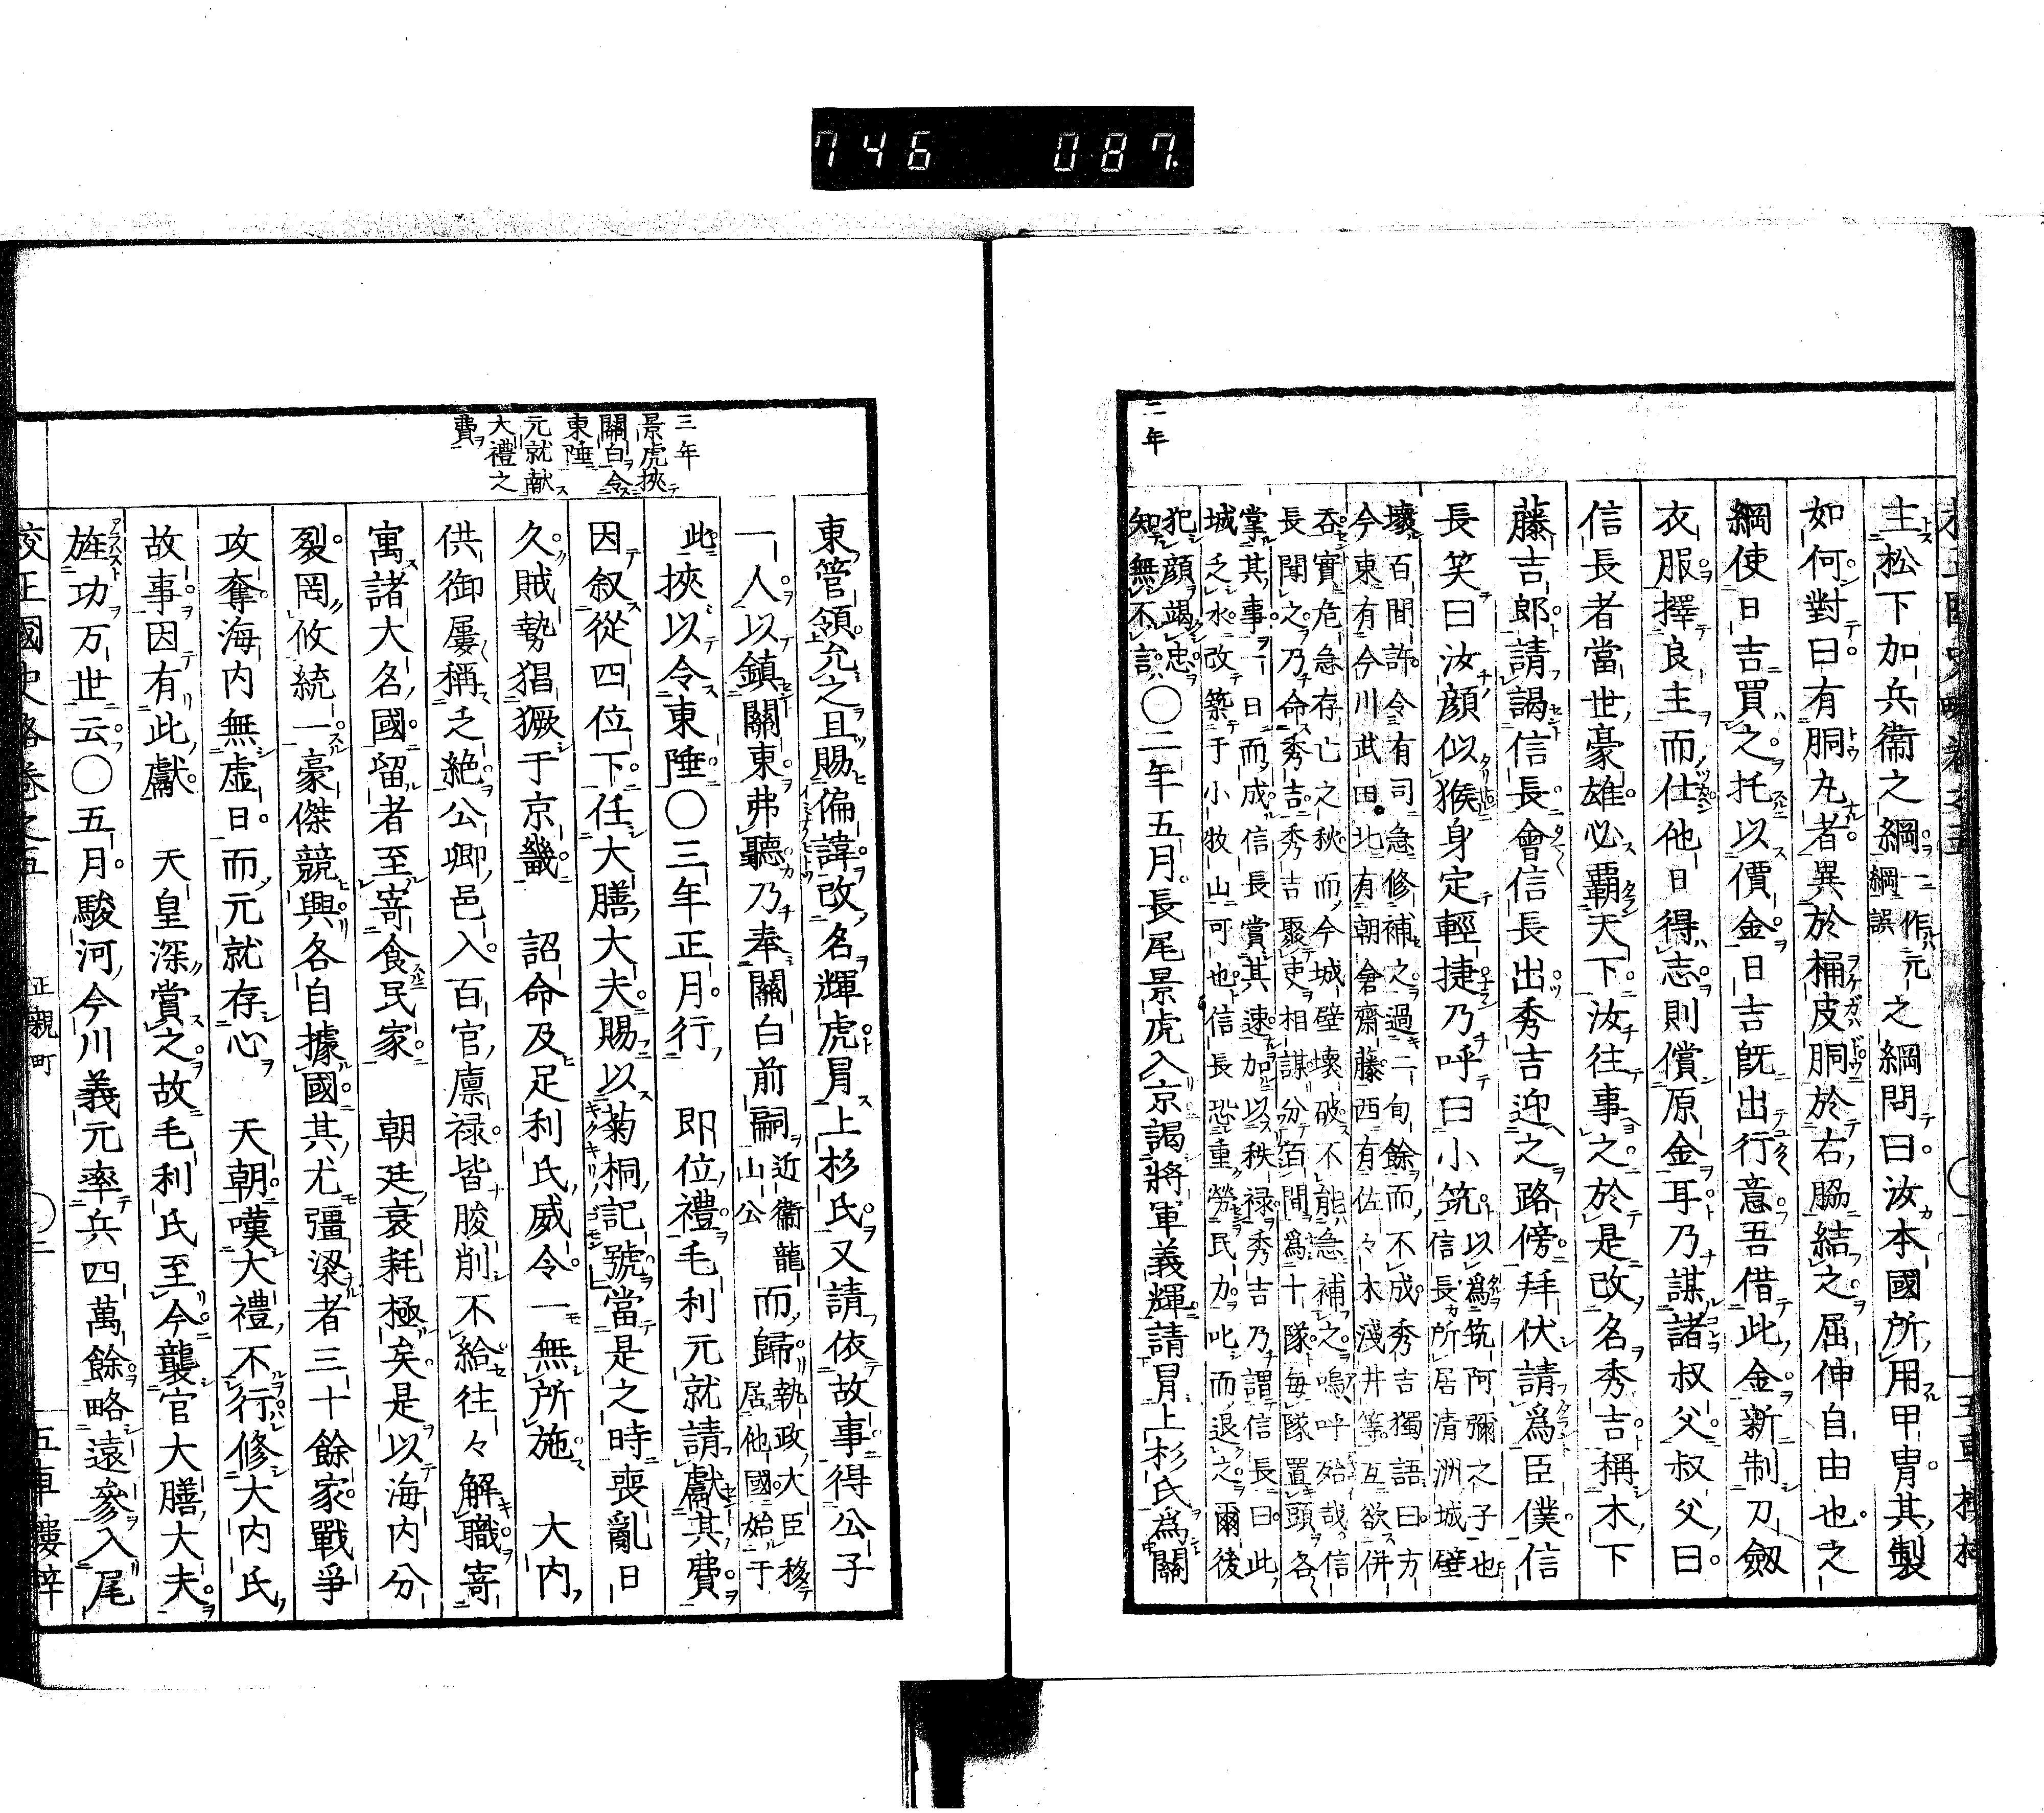 746 087.
二年
主松下加兵衞之綱一作元綱誤之綱問曰汝本國所用甲冑其製
如何對曰有胴丸者異於桶皮胴於右脇結之屈伸自由也之
綱使日吉買之托以價金日吉旣出行意吾借此金新制刀劔
衣服擇良主而仕他日得志則償原金耳乃謀諸叔父叔父曰
信長者當世豪雄必覇天下汝往事之於是改名秀吉稱木下
藤吉郎請謁信長會信長出秀吉迎之路傍拜伏請爲臣僕信
長笑曰汝顔似猴身定輕捷乃呼曰小筑以爲筑阿彌之子也信長所居清洲城壁
壞百間許令有司急修補之過二旬餘而不成秀吉獨語曰方
今東有今川武田北有朝倉齋藤西有佐々木淺井等互欲併
呑實危急存亡之秋而今城壁壞破不能急補之嗚呼殆哉信
長聞之乃命秀吉秀吉聚吏相謀分百間爲十隊每隊置頭各
掌其事一日而成信長賞其速加以秩禄秀吉乃謂信長曰此
城乏水改築于小牧山可也信長恐重勞民力叱而退之爾後
犯顔竭忠
知無不言〇二年五月長尾景虎入京謁將軍義輝請冐上杉氏爲關
三年
景虎挾
關白令
東陲
元就献
大禮之
費
東管領允之且賜偏諱改名輝虎冐上杉氏又請依故事得公子
一人以鎮關東弗聽乃奉關白前嗣近衞龍山公而歸執政大臣移居他國始于
此挾以令東陲〇三年正月行 即位禮毛利元就請獻其費
因叙從四位下任大膳大夫賜以菊桐記號當是之時喪亂日
久賊勢猖獗于京畿 詔命及足利氏威令一無所施 大内
供御屢稱乏絶公卿邑入百官廩禄皆朘削不給往々解職寄
寓諸大名國留者至寄食民家 朝廷衰耗極矣是以海内分
裂罔攸統一豪傑競興各自據國其尤彊梁者三十餘家戰爭
攻奪海内無虚日而元就存心 天朝嘆大禮不行修大内氏
故事因有此獻 天皇深賞之故毛利氏至今襲官大膳大夫
旌功万世云〇五月駿河今川義元率兵四萬餘略遠參入尾
校正國史略卷之五 正親町 〇二 五車樓梓